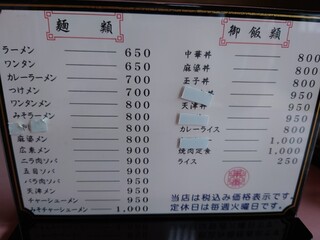 麺類
ラーメン 650
ワンタン 650
カレーラーメン 700
つけメン 700
ワンタンメン 800
みそラーメン 800
800
麻婆メン 800
広東メン 900
ニラ肉ソバ 900
五目ソバ 950
バラ肉ソバ 950
天津メン 950
チャーシューメン 950
みそチャーシューメン 1,000
御飯類
中華丼 800
麻婆丼 800
玉子丼 800
丼 950
天津丼 950
800
カレーライス 800
1,000
焼肉定食 1,000
ライス 250
当店は税込み価格表示です。
定休日は毎週火曜日です。